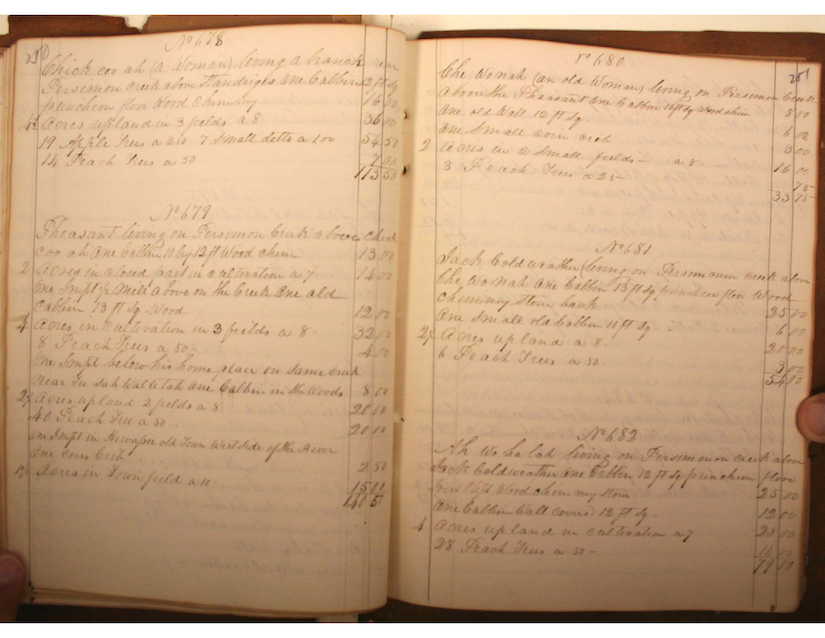 250
No 678
Chick coo ah (a Woman) living a branch near
Persemon creek above Standriges One Cabbin 12 ft Sq
puncheon floor Wood Chimny 16 00
4½ Acres upland in 3 fields a 8 36 00
19 Apple Trees a 250 7 Small ditto a 100 54 50
14 Peach Trees a 50 7 00
113 50
No 679
Pheasant living on Persemon Creek above Chick
coo ah One Cabbin 11 by 12 ft Wood chim 13 00
2 Acres in closed part in cultivation a 7 14 00
One Impt ½ Mile above on the Creek One old
Cabbin 13 ft Sq Wood 12 00
4 Acres in Cultivation in 3 fields a 8 32 00
8 Peach Trees a 50 4 00
One Impt below his home place on Same creek
near One Cabbin in the Woods 8 00
2½ Acres upland 2 fields a 8 20 00
40 Peach Tree a 50 20 00
One Impt in Hewassee old Town West Side of the River
One corn Crib 2 50
1½ Acres in Town field a 10 15 00
140 5
251
No 680
Che Wo nah (an old Woman) living on Persemon Creek
above the Pheasant One Cabbin 10 ft Sq Wood chim 8 00
One old Wall 12 ft Sq 6 00
One Small corn crib 3 00
2 Acres in 2 Small fields a 8 16 00
3 Peach Trees a 25 75
33 75
No 681
Jack Cold weather living on Persemon creek above
Che Wo nah One Cabbin 13 ft Sq puncheon floor Wood
chimny Stone back 25 00
One Small old Cabbin 10 ft Sq 6 00
2½ Acres upland a 8 20 00
6 Peach Trees a 50 3 00
54 00
No 682
Ah Wo ha lah living on Persemon creek above
Jack Cold weather One Cabbin 12 ft Sq puncheon floor
Wood chimny Stone 25 00
One Cabbin Wall coverd 12 ft Sq 12 00
4 Acres upland in cultivation a 7 28 00
28 Peach Trees a 50 14 00
79 00